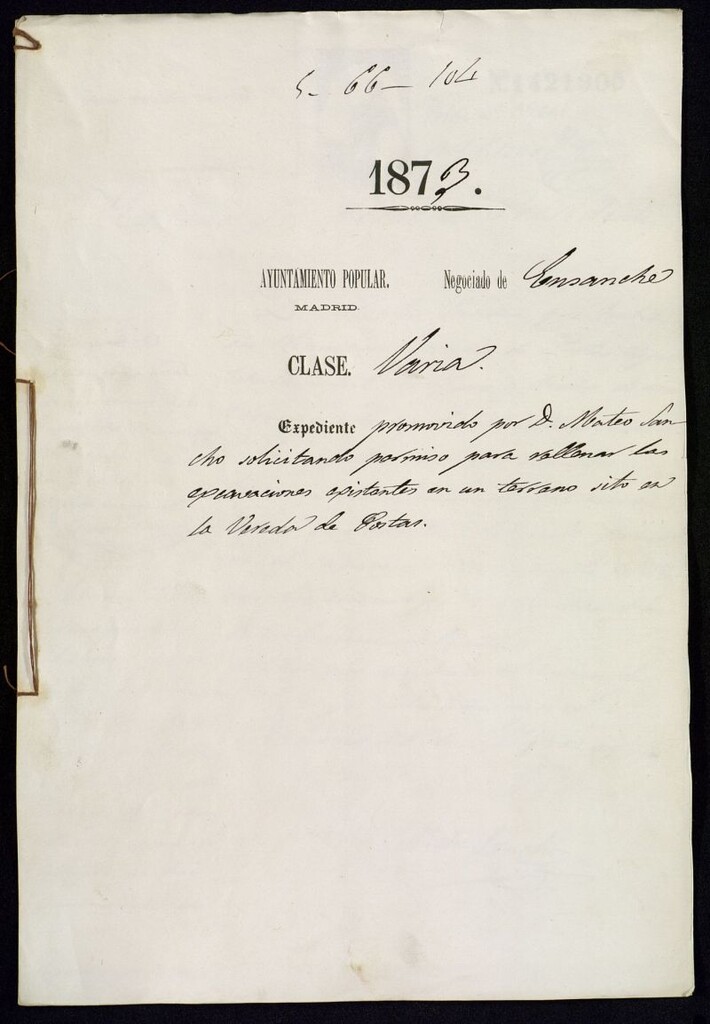 5-66-104
1873.
AYUNTAMIENTO POPULAR. Negociado de Ensanche
MADRID.
CLASE. Varia.
Expediente promovido por D. Mateo San-
cho solicitando permiso para rellenar las
excavaciones existentes en un terreno sito en
la Vereda de Postas.